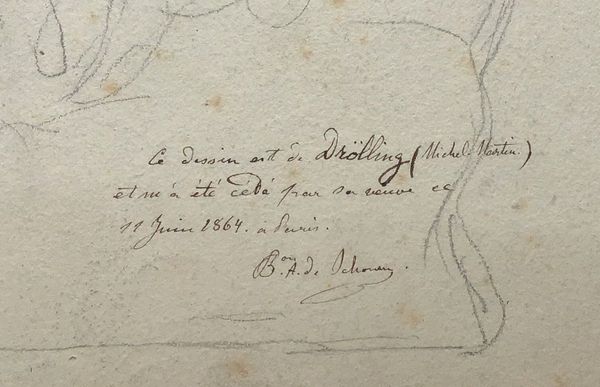 Ce dessin est de Drölling (Michel Martin.)
et m'a été cédé par sa veuve ce
11 Juin 1864. à Paris.
Bon. A. de Schonen.